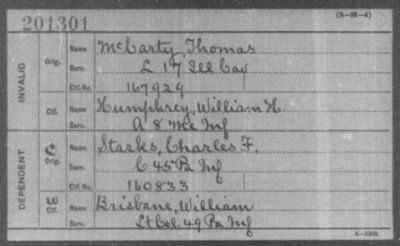 201301
(3-26-4)
INVALID
Orig.
Name McCarty, Thomas
Serv. L 17 Ill Cav
Ctf. No. 167929
Ctf.
Name Humphrey, William H
Serv. A 8 Me Inf
DEPENDENT
C
Orig.
Name Starks, Charles F.
Serv. C 45 Pa Inf
Ctf. No. 160833
W
Ctf.
Name Brisbane, William
Serv. Lt Col. 49 Pa Inf